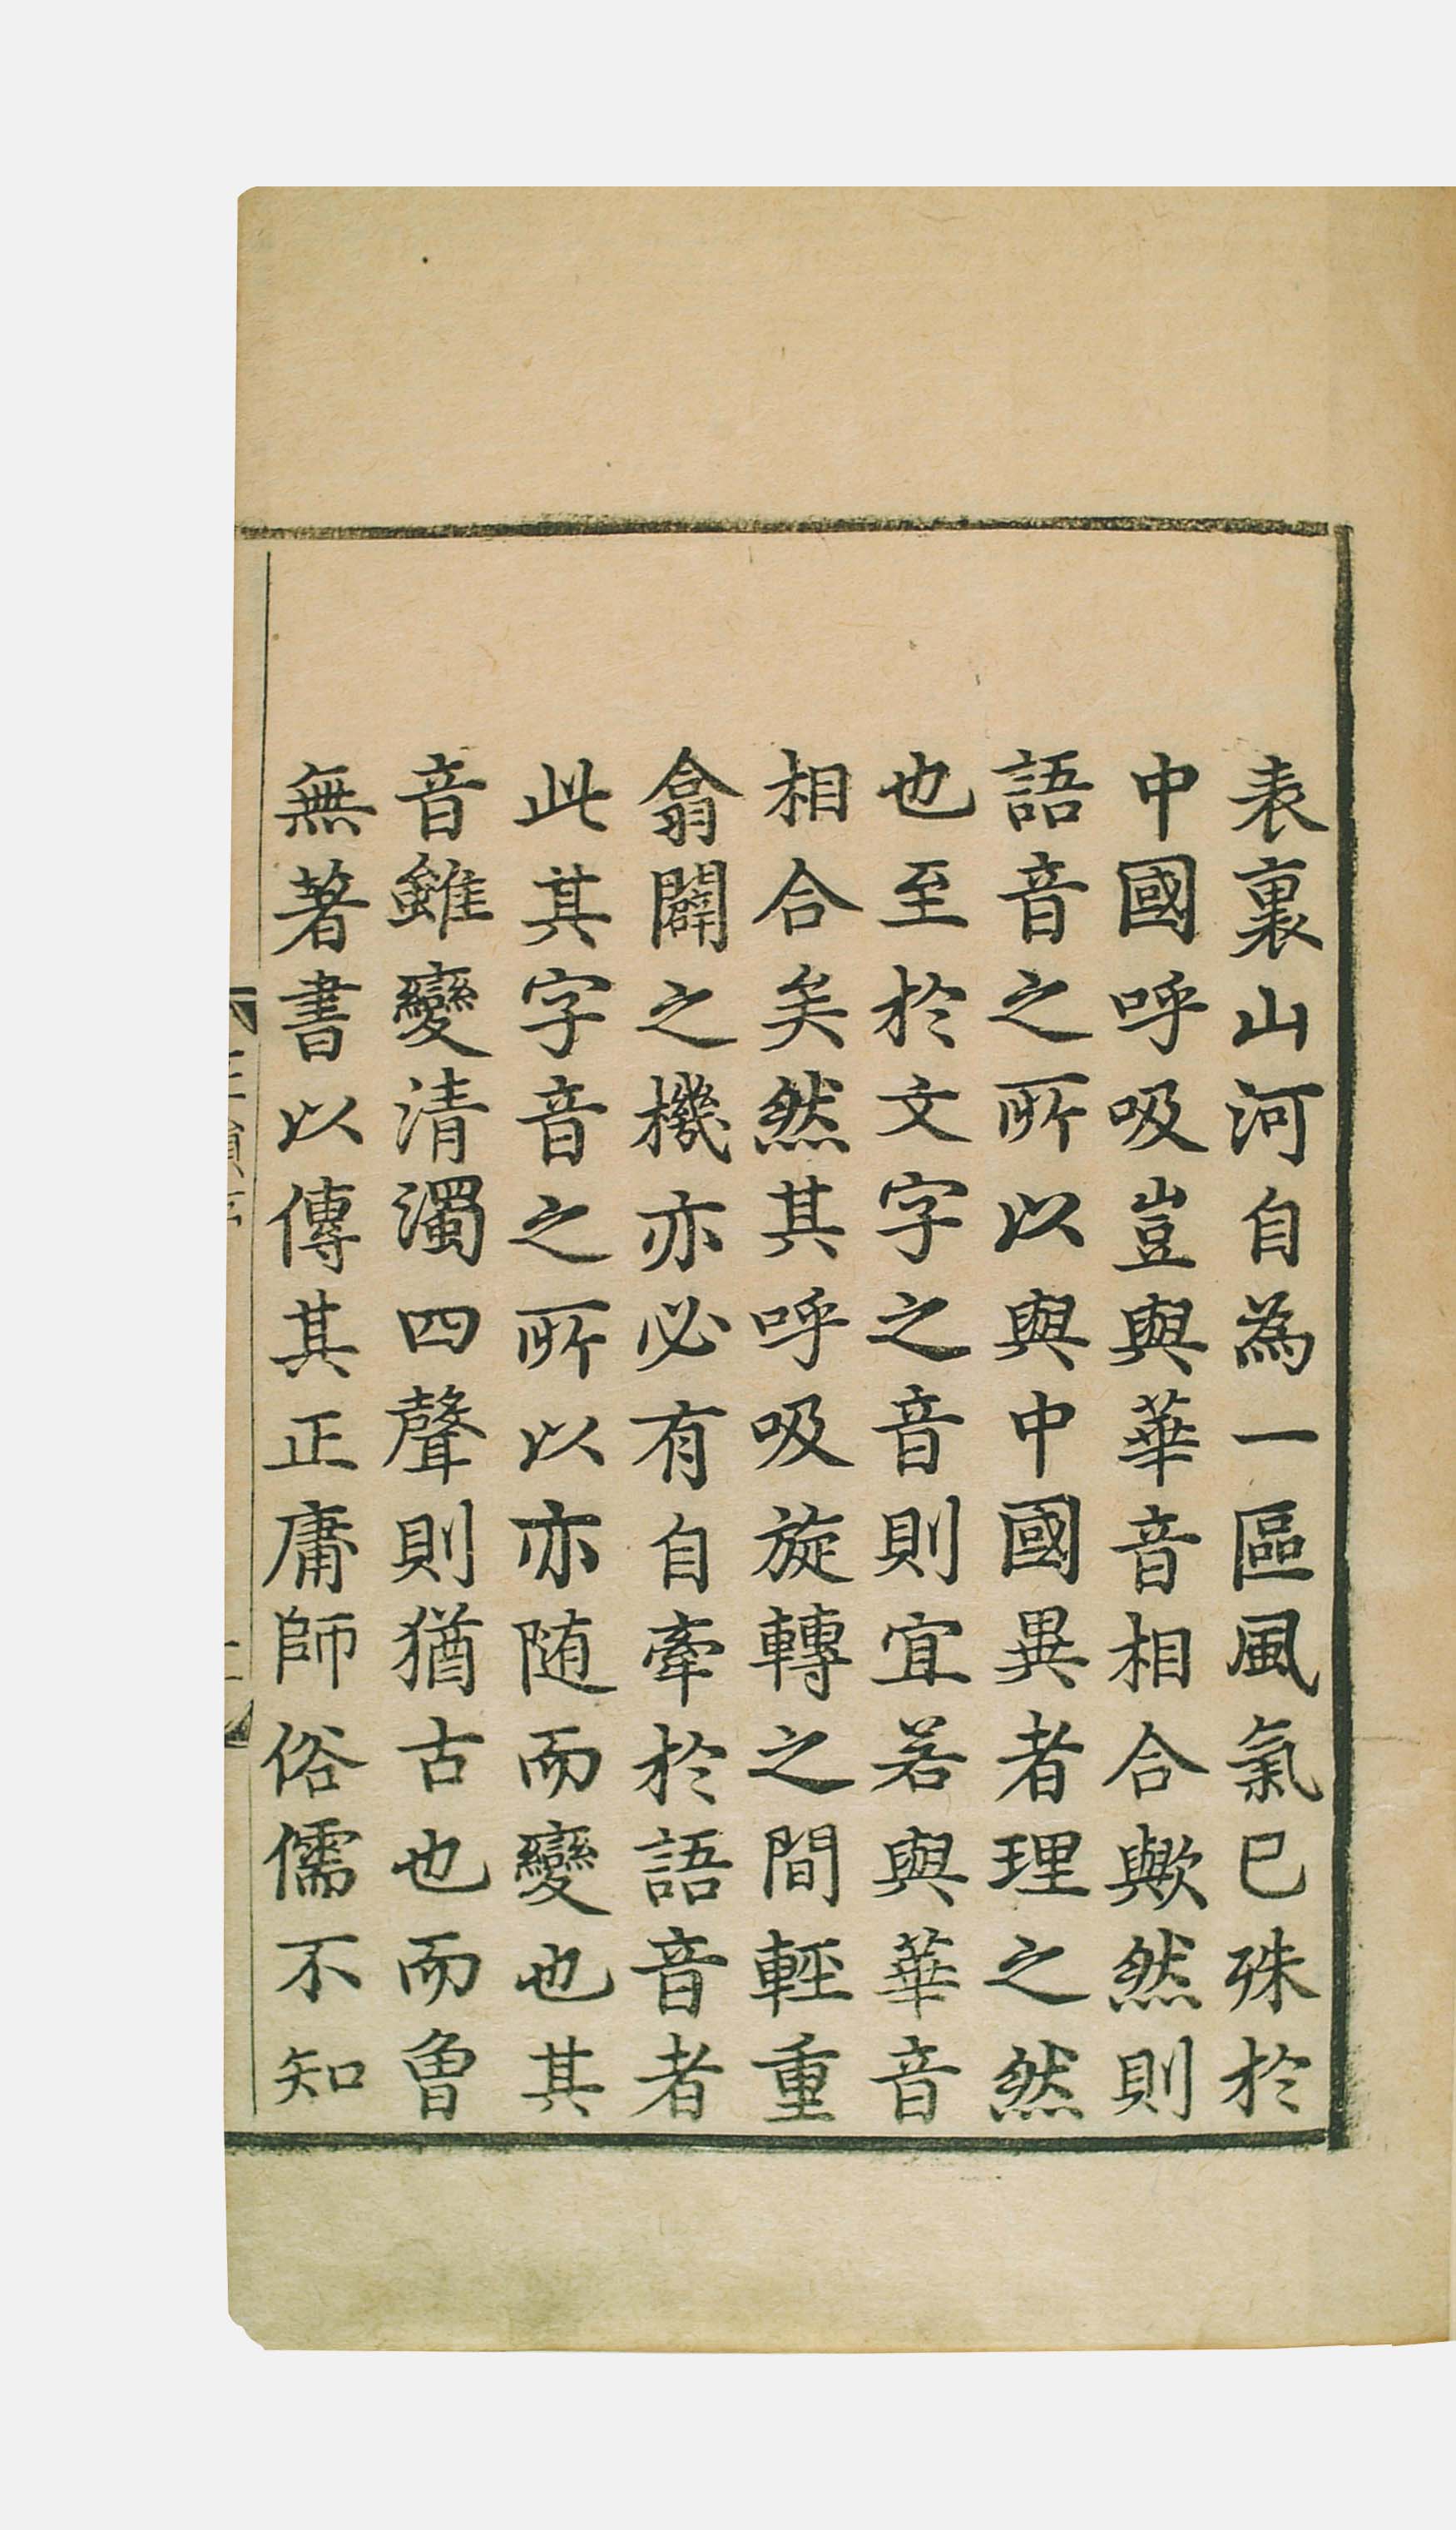 表裏山河自為一區風氣已殊於
中國呼吸豈與華音相合歟然則
語音之所以與中國異者理之然
也至於文字之音則宜若與華音
相合矣然其呼吸旋轉之間輕重
翕闢之機亦必有自牽於語音者
此其字音之所以亦随而變也其
音雖變清濁四聲則猶古也而曾
無著書以傳其正庸師俗儒不知